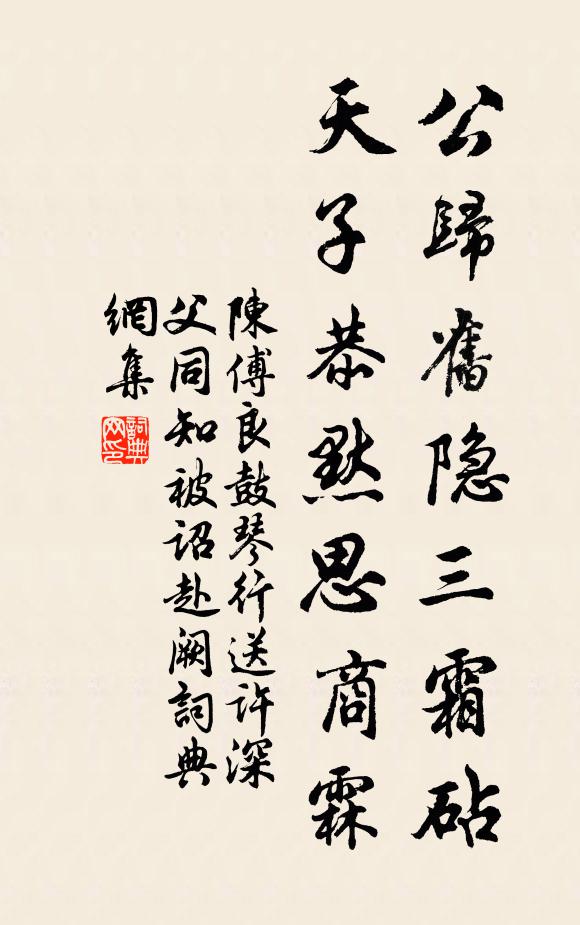 公歸舊隐三霜砧
天子恭默思商霖
陳傅良鼓琴行送许深
父同知被诏赴阙詞典
網集
詞典网印